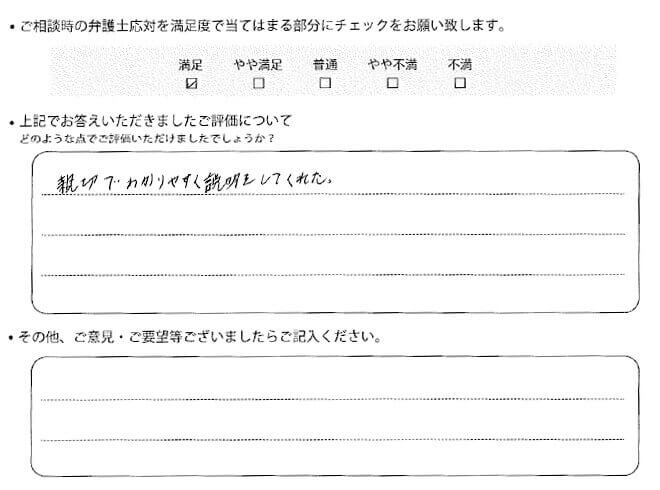 • ご相談時の弁護士応対を満足度で当てはまる部分にチェックをお願い致します。
満足 やや満足 普通 やや不満 不満
☑ ☐ ☐ ☐ ☐
• 上記でお答えいただきましたご評価について
どのような点でご評価いただけましたでしょうか?
親切でわかりやすく説明をしてくれた。
• その他、ご意見・ご要望等ございましたらご記入ください。